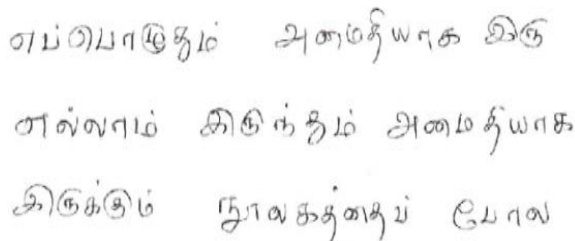 எப்பொழுதும் அமைதியாக இரு
எல்லாம் இருந்தும் அமைதியாக
இருக்கும் நூலகத்தைப் போல